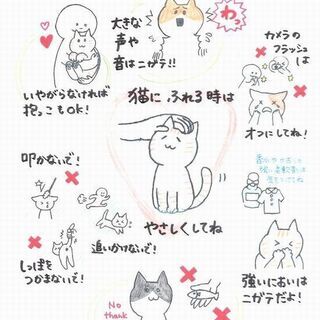 いやがらなければ
抱っこもOK!
大きな
声や
音はニガテ!!
わっ
カメラの
フラッシュ
は
オフにしてね!
猫に ふれる時は
やさしくしてね
叩かないで!
しっぽを
つかまないで!
追いかけないで!
強いにおいは
ニガテだよ!
No
thank